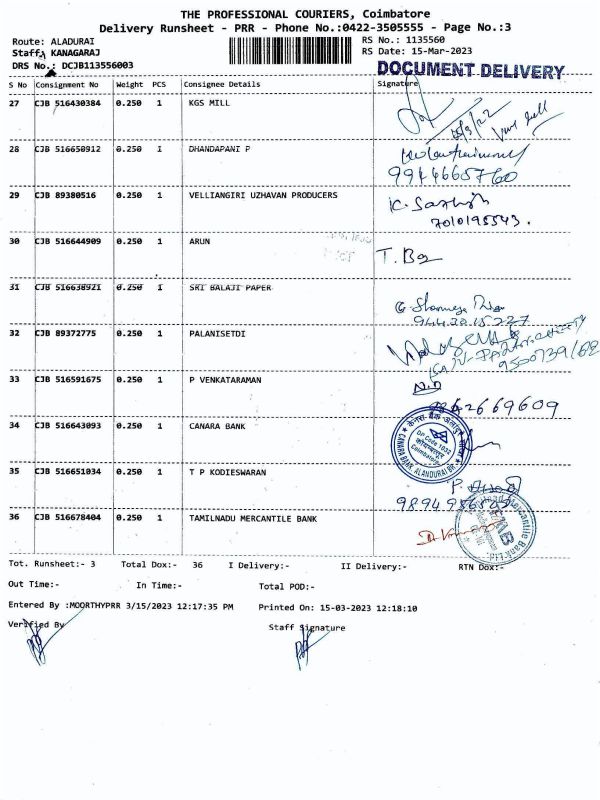 THE PROFESSIONAL COURIERS, Coimbatore
Delivery Runsheet - PRR - Phone No.:0422-3505555 - Page No.:3
Route: ALADURAI
RS No.: 1135560
Staff: KANAGARAJ
RS Date: 15-Mar-2023
DRS No.: DCJB113556003
DOCUMENT DELIVERY
S No Consignment No Weight PCS Consignee Details Signature
27 CJB 516430384 0.250 1 KGS MILL
28 CJB 516650912 0.250 1 DHANDAPANI P
9944665760
29 CJB 89380516 0.250 1 VELLIANGIRI UZHAVAN PRODUCERS
K. Sathish
7010195543.
30 CJB 516644909 0.250 1 ARUN
31 CJB 516638921 0.250 1 SRI BALAJI PAPER
32 CJB 89372775 0.250 1 PALANISETDI
33 CJB 516591675 0.250 1 P VENKATARAMAN
34 CJB 516643093 0.250 1 CANARA BANK
DP Code 1032
CANARA BANK, ALANDURAI BR.
35 CJB 516651034 0.250 1 T P KODIESWARAN
36 CJB 516678404 0.250 1 TAMILNADU MERCANTILE BANK
Tot. Runsheet:- 3 Total Dox:- 36 I Delivery:- II Delivery:- RTN Dox:-
Out Time:- In Time:- Total POD:-
Entered By :MOORTHYPRR 3/15/2023 12:17:35 PM Printed On: 15-03-2023 12:18:10
Verified By Staff Signature